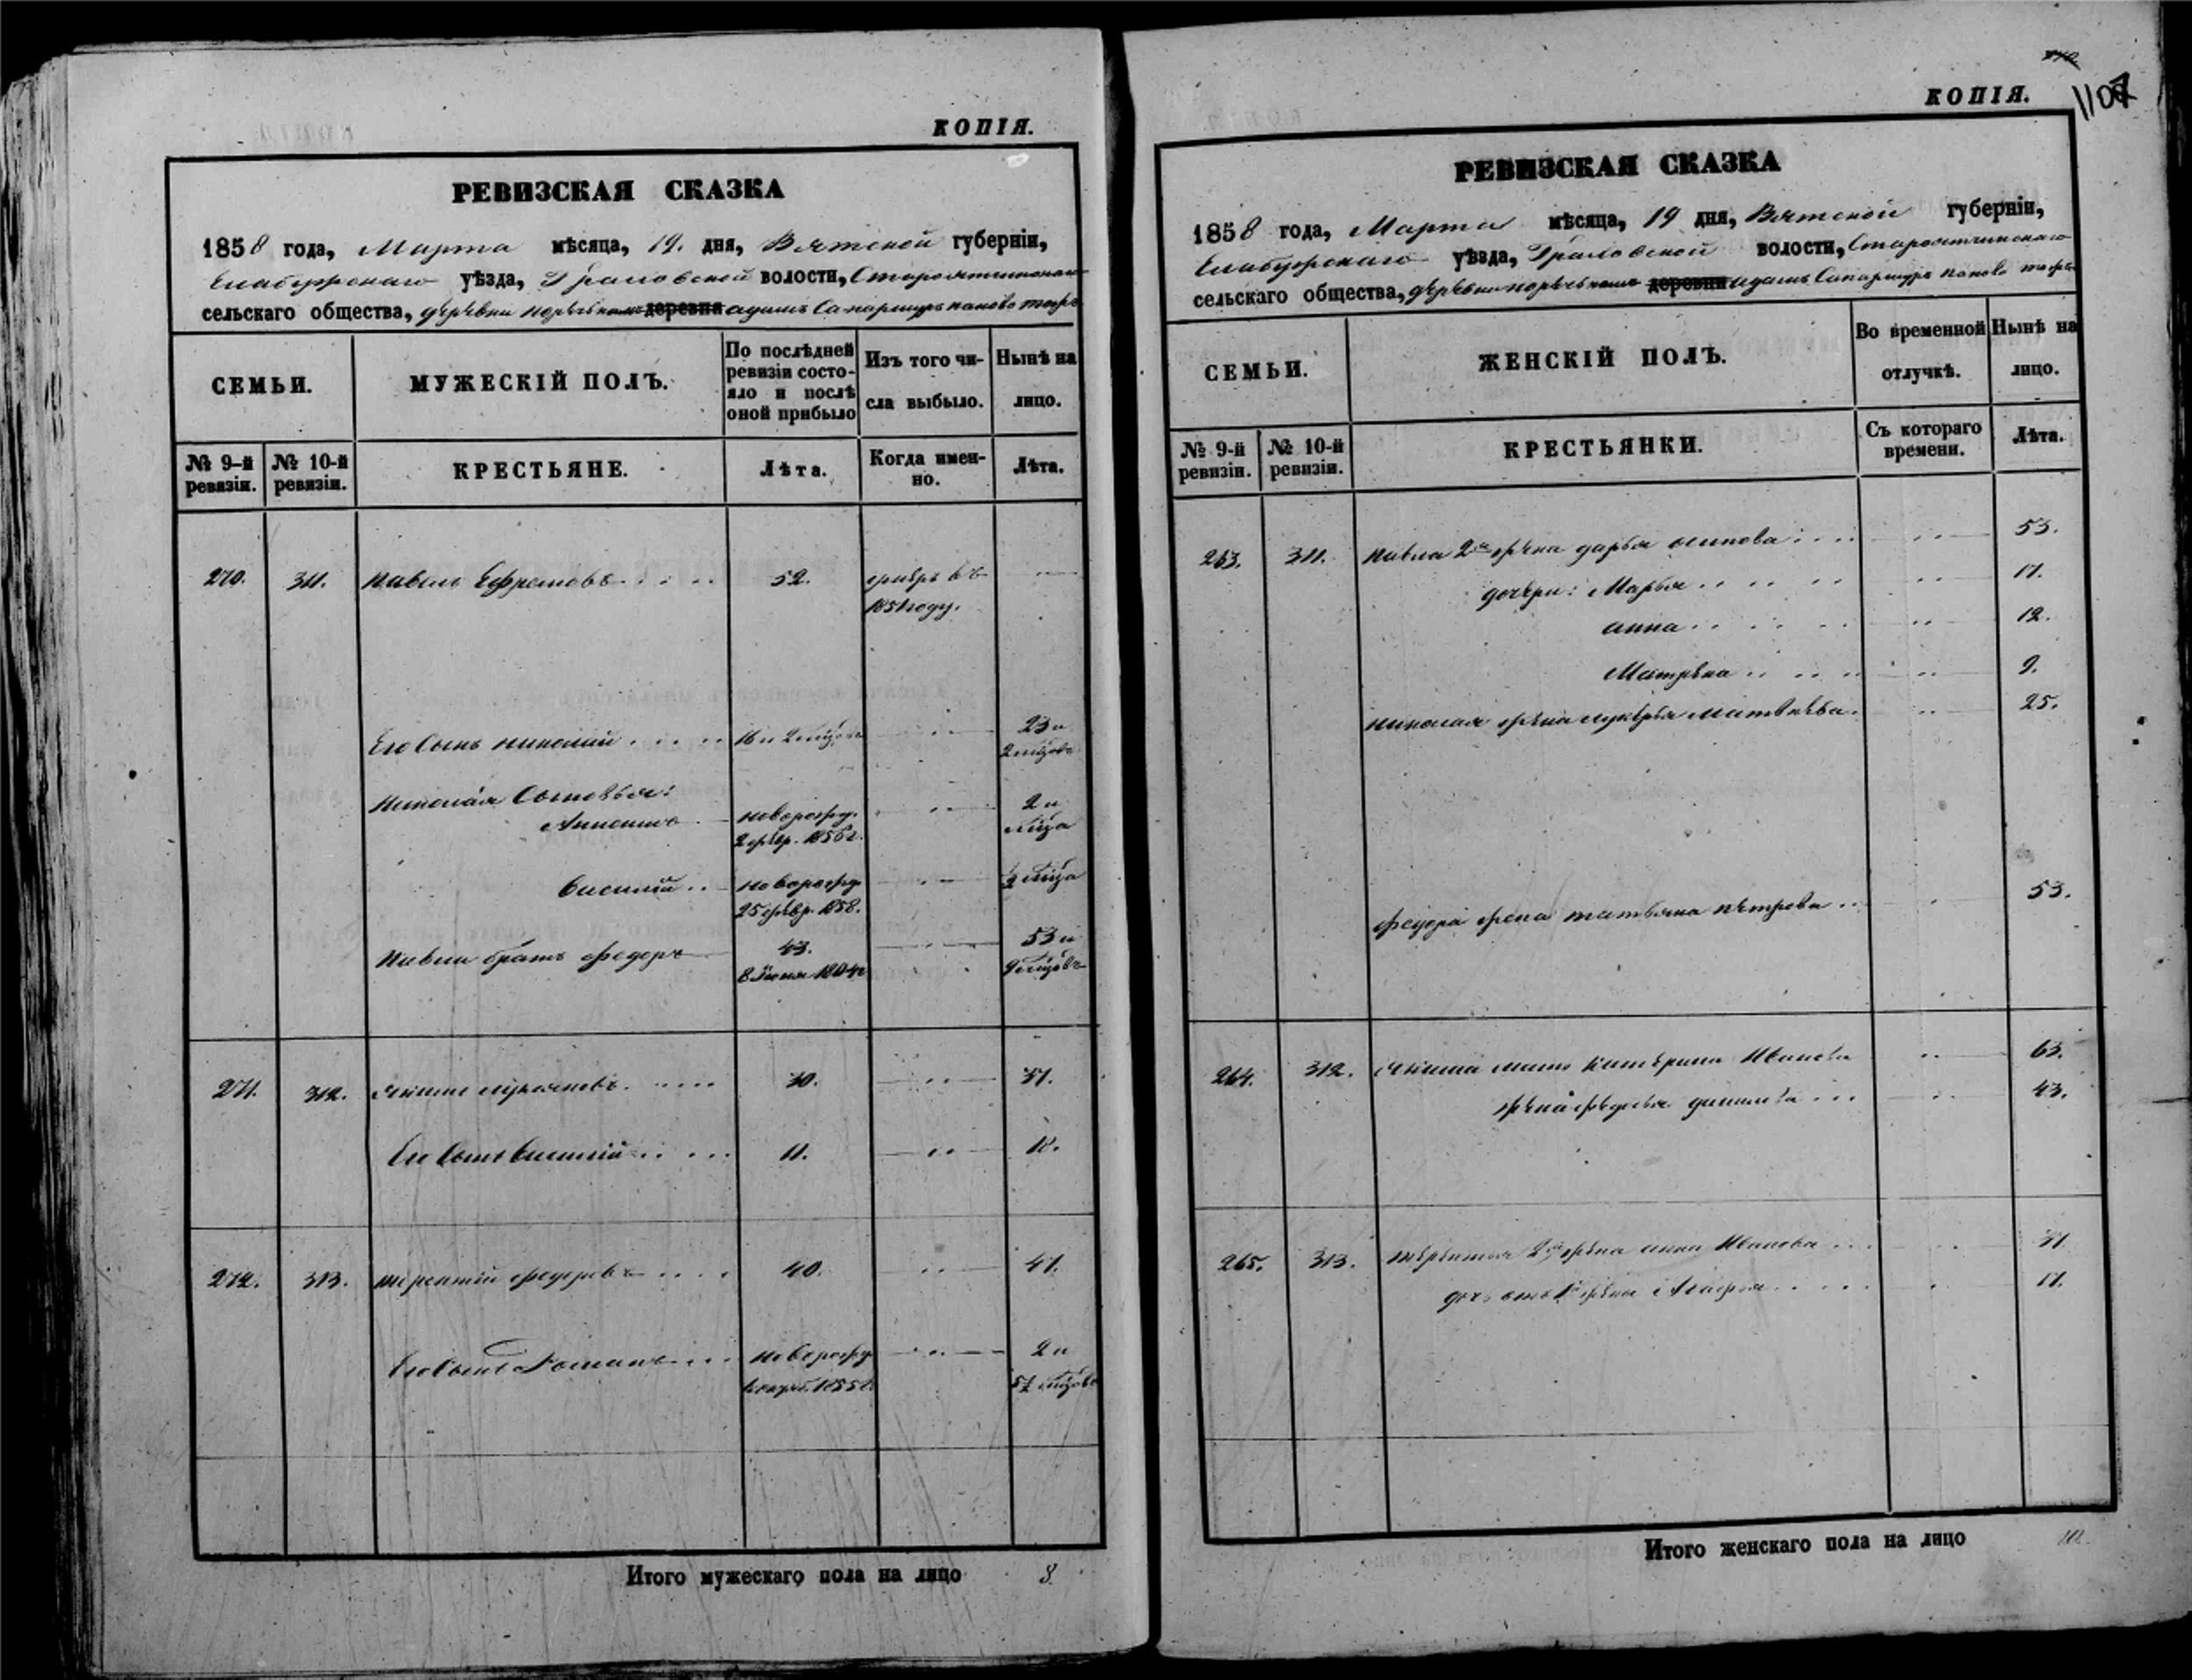 КОПІЯ.
РЕВИЗСКАЯ СКАЗКА
1858 года, Марта мѣсяца, 19. дня, Вятской губерніи,
Елабужскаго уѣзда, Граховской волости,
сельскаго общества, деревни
СЕМЬИ.
МУЖЕСКІЙ ПОЛЪ.
По послѣдней ревизіи состояло и послѣ оной прибыло
Изъ того числа выбыло.
Нынѣ на лицо.
№ 9-й ревизіи.
№ 10-й ревизіи.
КРЕСТЬЯНЕ.
Лѣта.
Когда именно.
Лѣта.
270. 311. Павелъ Ефремовъ 52. умеръ въ
1851 году.
Его сынъ Николай 16 и 2 мѣсцовъ 23 и
2 мѣсцовъ
Николая сыновья:
новорожд. 2 и
2 февр. 1856 г. мѣсца
Василій новорожд. ½ мѣсца
25 февр. 1858.
Павла братъ Федоръ 43. 53 и
8 Іюня 1804 9 мѣсцовъ
271. 312. 30. 37.
Его сынъ Василій 11. 18.
272. 313. Терентій Федоровъ 40. 47.
Его сынъ Романъ новорожд. 2 и
1855 г. 5½ мѣсцовъ
Итого мужескаго пола на лицо 8.
КОПІЯ.
1107
РЕВИЗСКАЯ СКАЗКА
1858 года, Марта мѣсяца, 19 дня, Вятской губерніи,
Елабужскаго уѣзда, Граховской волости,
сельскаго общества, деревни
СЕМЬИ.
ЖЕНСКІЙ ПОЛЪ.
Во временной отлучкѣ.
Нынѣ на лицо.
№ 9-й ревизіи.
№ 10-й ревизіи.
КРЕСТЬЯНКИ.
Съ котораго времени.
Лѣта.
263. 311. Павла 2я жена Дарья Осипова 53.
дочери: Марья 17.
Анна 12.
Матрена 9.
Николая жена Лукерья Матвѣева 25.
Федора жена Татьяна Петрова 53.
264. 312. мать Катерина Иванова 63.
жена Федосья 43.
265. 313. Терентья 2я жена Анна Иванова 37
дочь отъ 1й жены Агафья 17.
Итого женскаго пола на лицо 10.